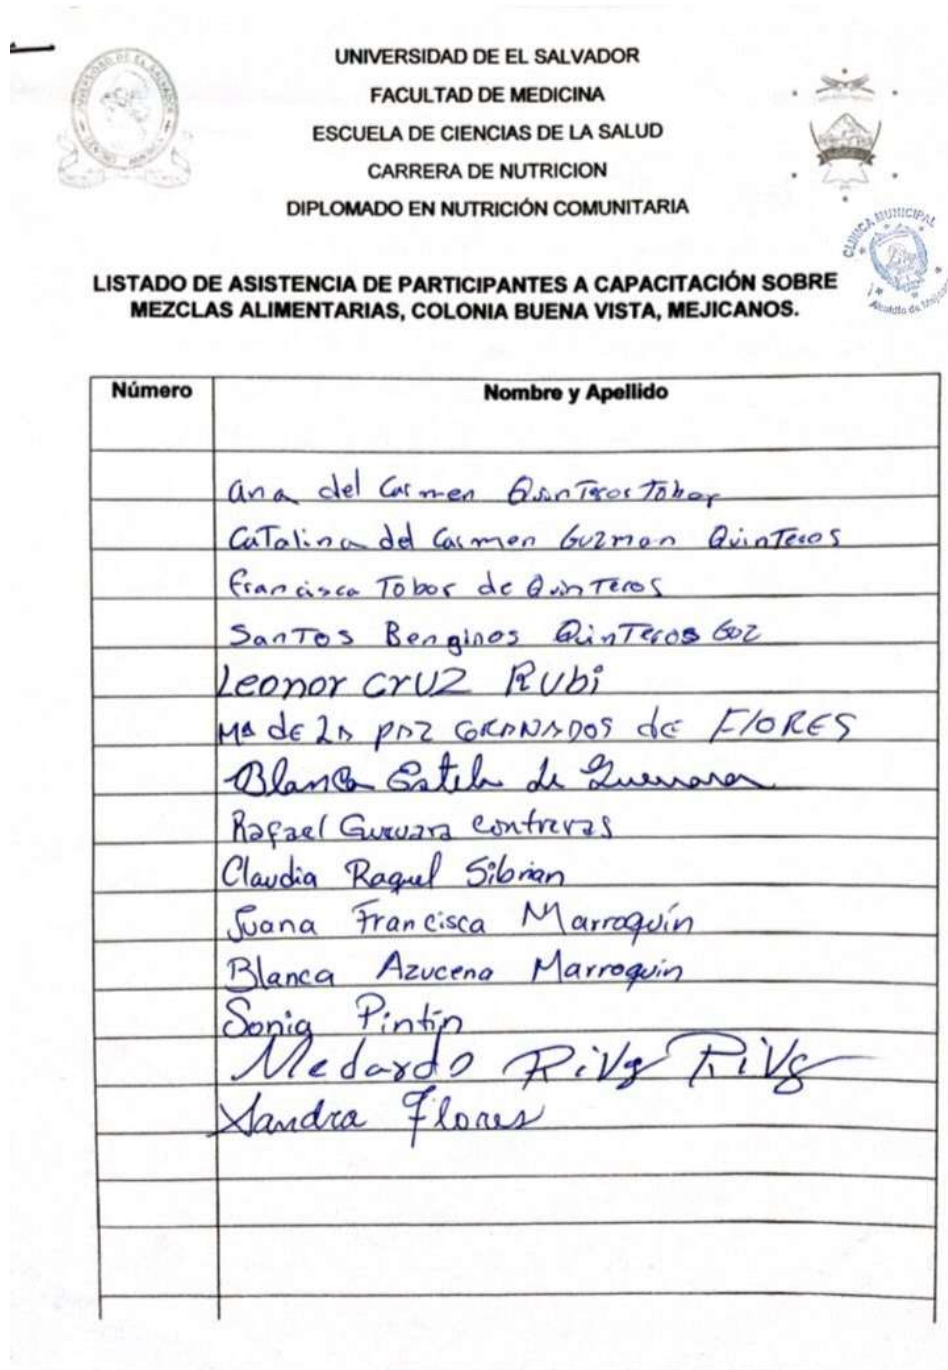 UNIVERSIDAD DE EL SALVADOR
FACULTAD DE MEDICINA
ESCUELA DE CIENCIAS DE LA SALUD
CARRERA DE NUTRICION
DIPLOMADO EN NUTRICIÓN COMUNITARIA
CLINICA MUNICIPAL
Alcaldía de
LISTADO DE ASISTENCIA DE PARTICIPANTES A CAPACITACIÓN SOBRE
MEZCLAS ALIMENTARIAS, COLONIA BUENA VISTA, MEJICANOS.
Número Nombre y Apellido
Ana del Carmen Quinteros Tobar
Catalina del Carmen Guzman Quinteros
Francisca Tobar de Quinteros
Santos Benginos Quinteros
Leonor Cruz Rubi
Mª de la paz GRANADOS de FlORES
Blanca Estela de Guevara
Rafael Guevara Contreras
Claudia Raquel Sibrian
Juana Francisca Marroquín
Blanca Azucena Marroquin
Sonia Pintin
Medardo Riva Riva
Sandra Flores